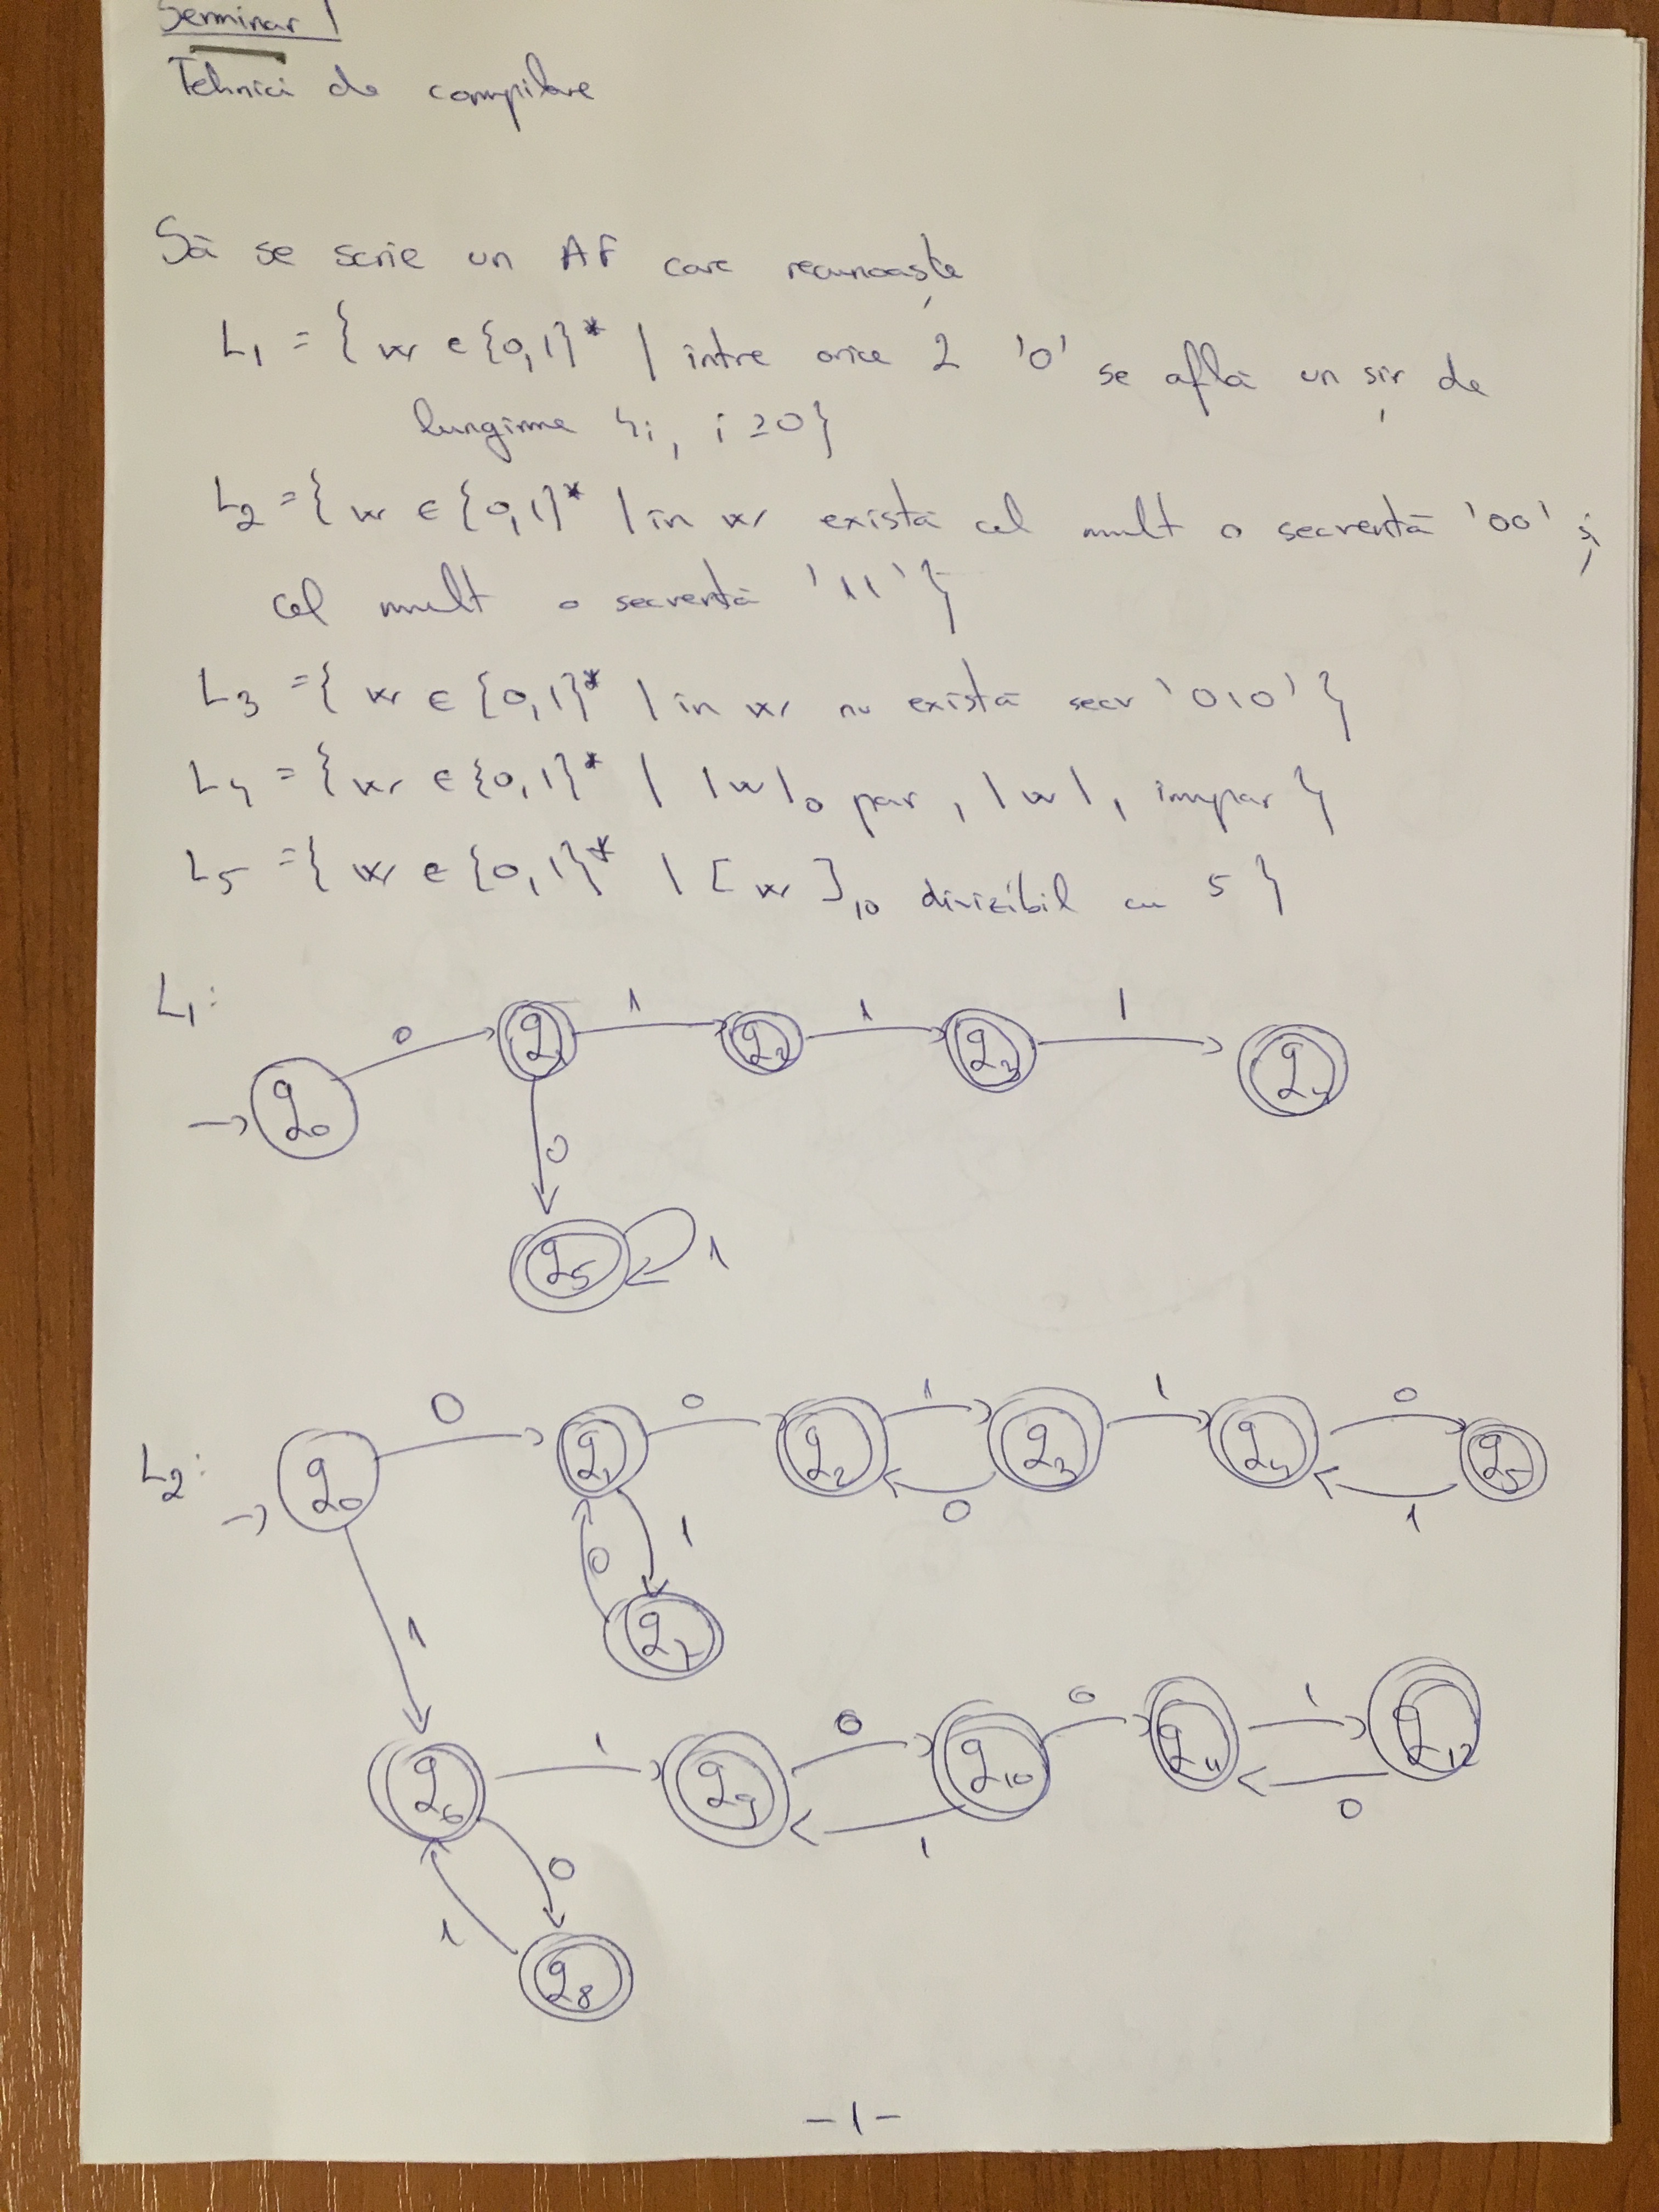 Seminar 1
Tehnici de compilare
Să se scrie un AF care recunoaște
L1 = { w ∈ {0,1}* | între orice 2 '0' se află un șir de
lungime 4i, i ≥ 0}
L2 = { w ∈ {0,1}* | în w există cel mult o secvență '00' și
cel mult o secvență '11' }
L3 = { w ∈ {0,1}* | în w nu există secv '010' }
L4 = { w ∈ {0,1}* | |w|0 par, |w|1 impar }
L5 = { w ∈ {0,1}* | [w]10 divizibil cu 5 }
L1:
0 1 1 1
q0 q1 q2 q3 q4
0
q5 1
L2:
0 0 1 1 0
q0 q1 q2 q3 q4 q5
0 1
0 1
q7
1
1 0 0 1
q6 q9 q10 q11 q12
1 0
0
1
q8
-1-